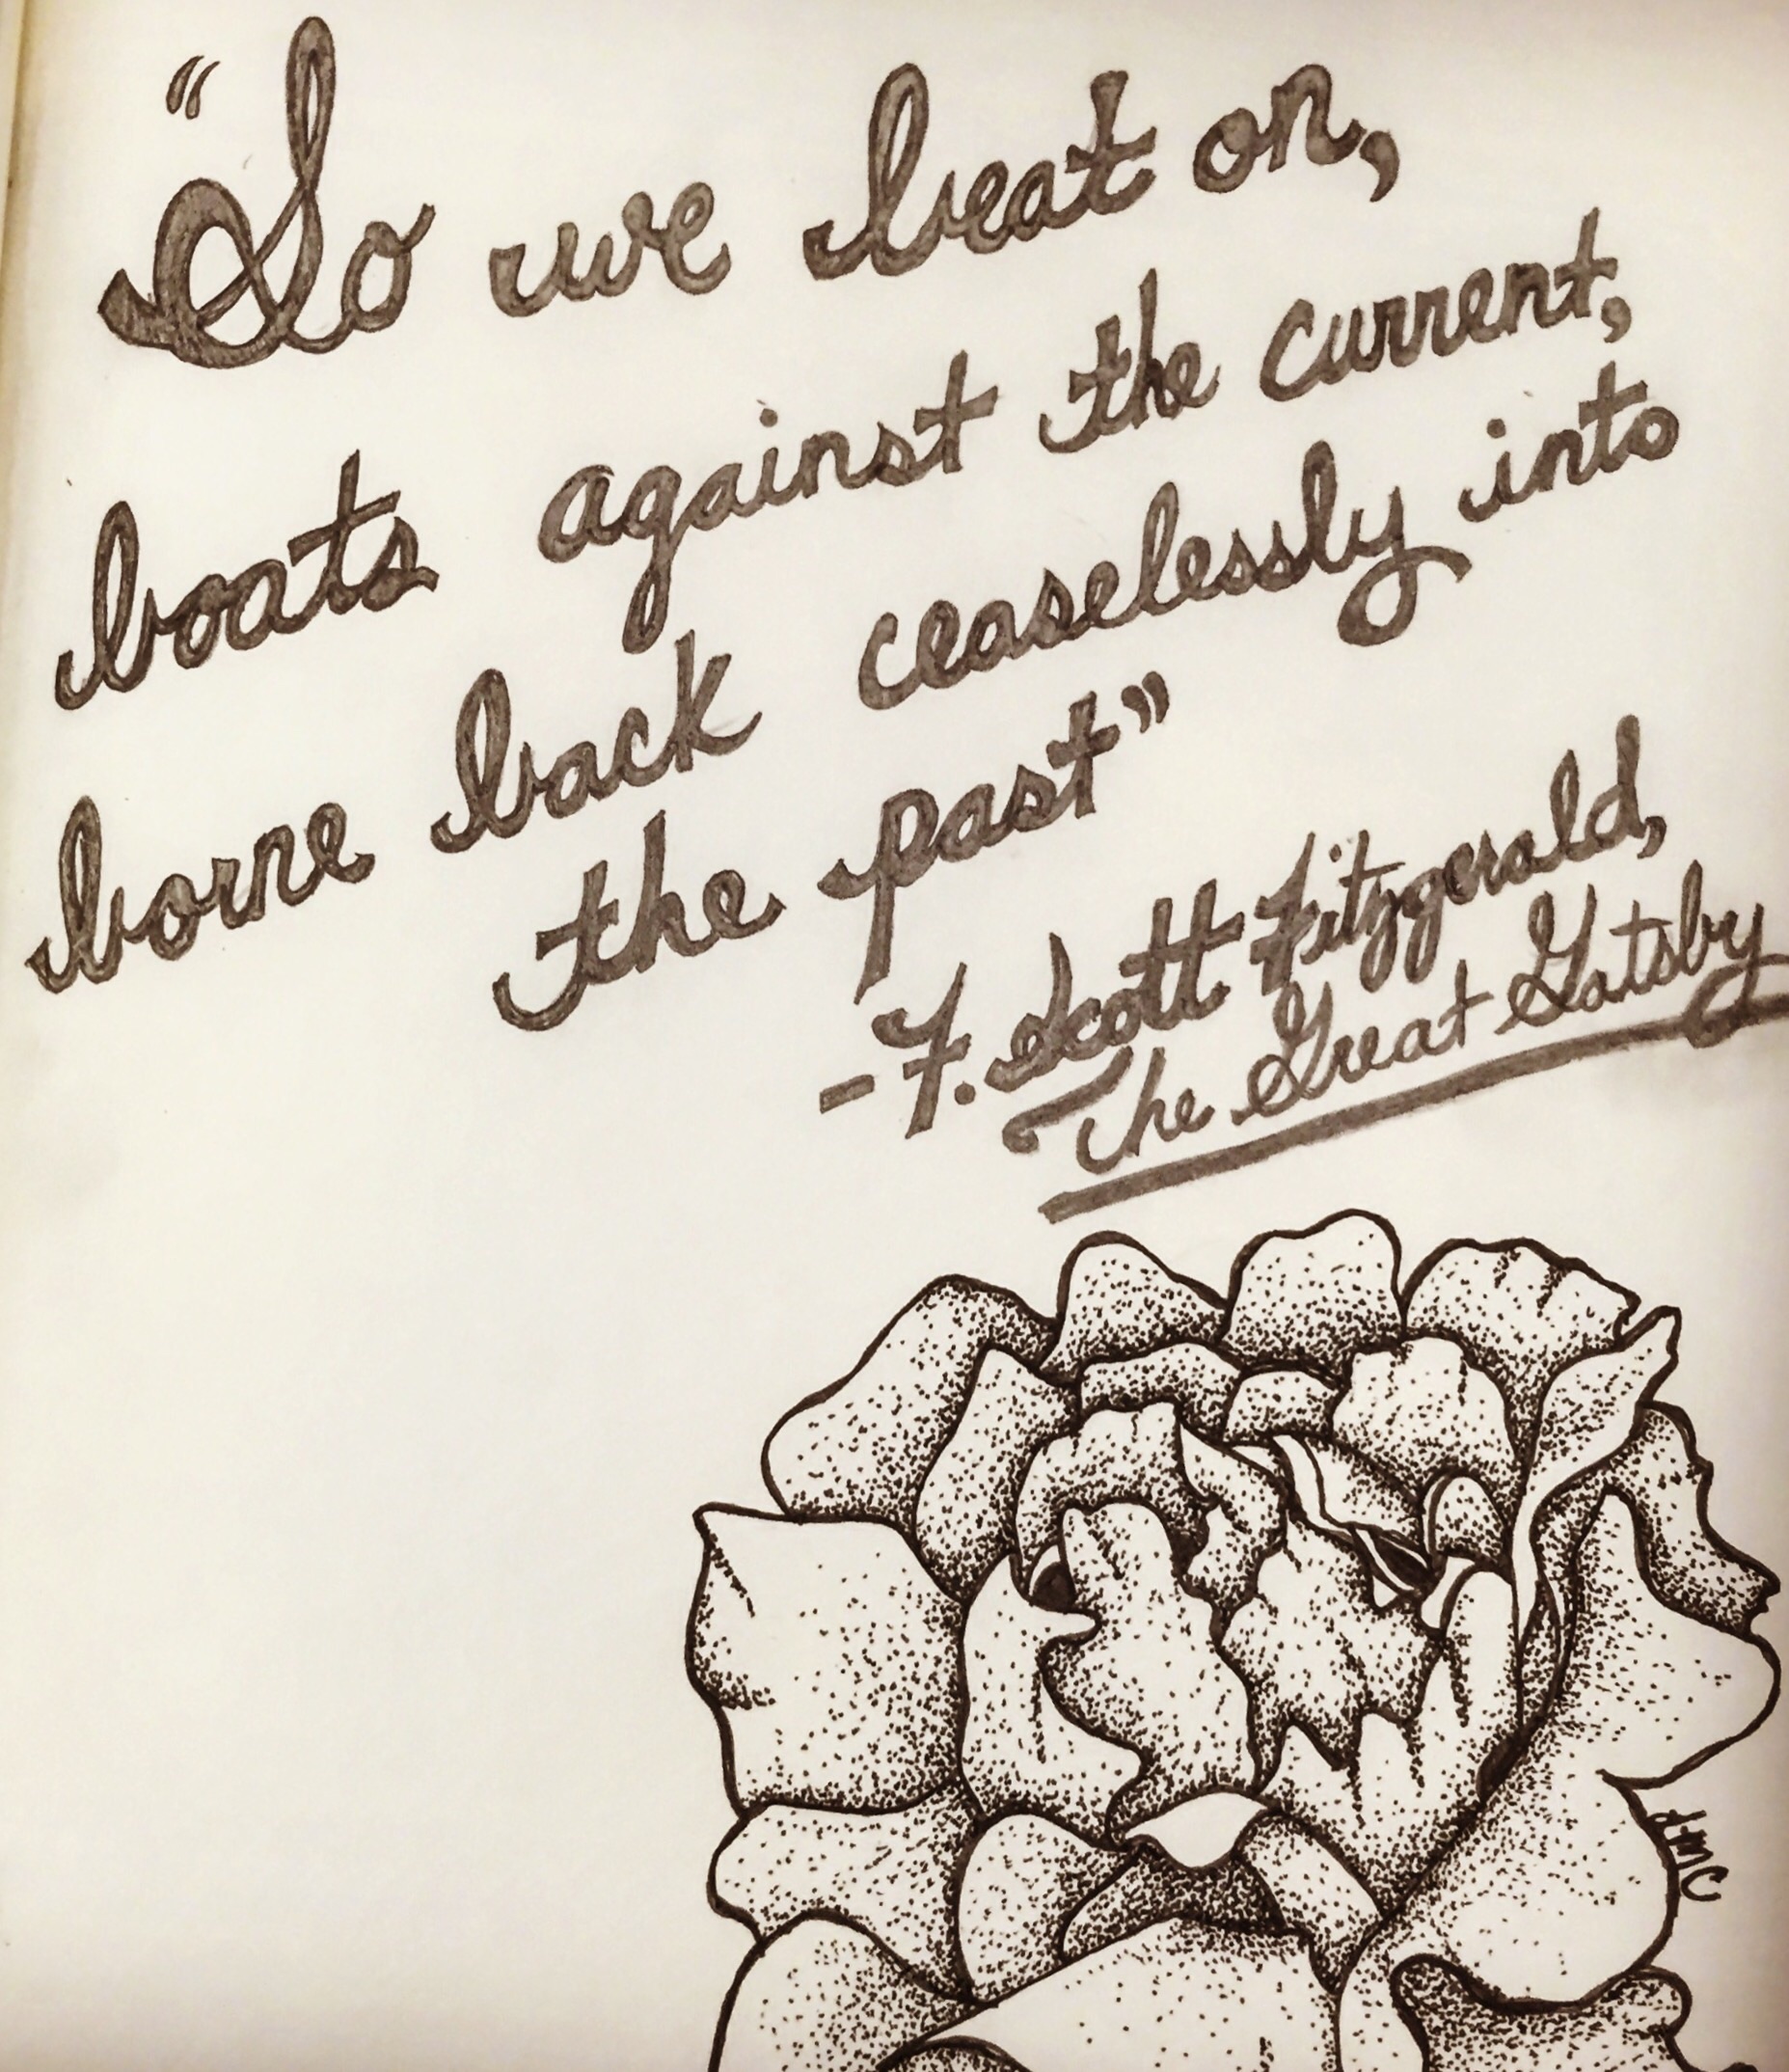 “So we beat on,
boats against the current,
borne back ceaselessly into
the past”
- F. Scott Fitzgerald,
The Great Gatsby